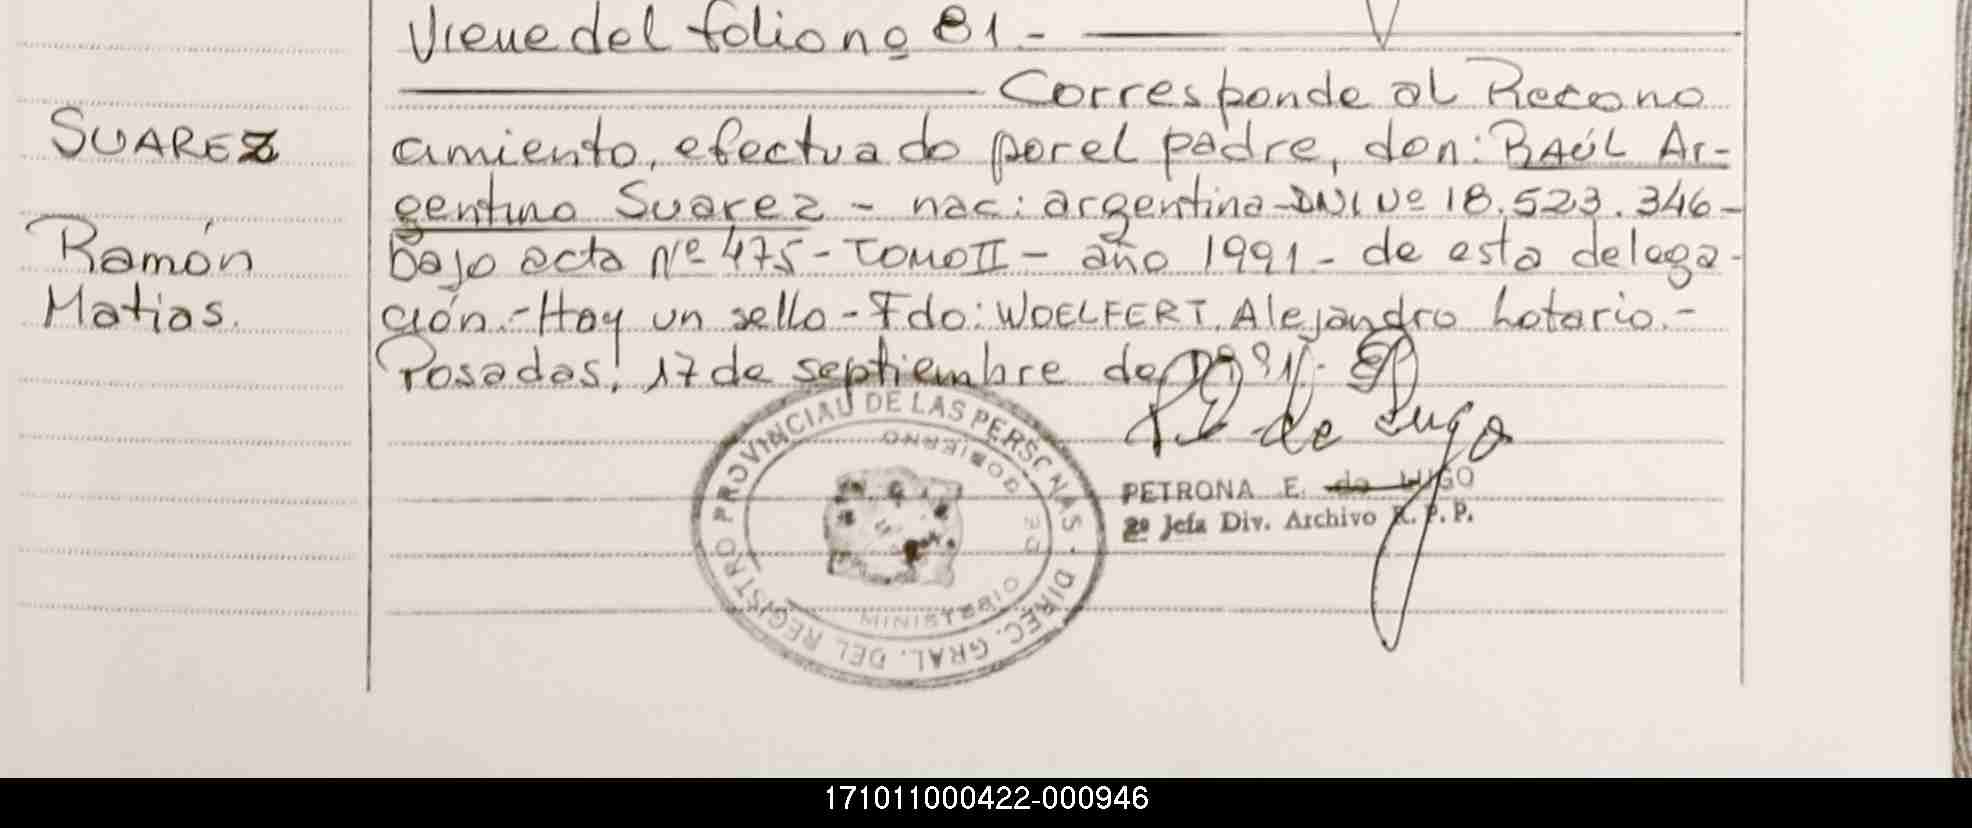 Viene del folio nº 81 -
Corresponde al Recono
SUAREZ
cimiento, efectuado por el padre, don: RAÚL Ar-
gentino Suarez - nac: argentina - DNI Nº 18.523.346 -
Ramón
bajo acta Nº 475 - TOMO II - año 1991 - de esta delega-
Matias.
ción.- Hay un sello - Fdo: WOELFERT, Alejandro Lotario.-
Posadas, 17 de septiembre de 1991.-
de Lugo
PETRONA E. de LUGO
2º Jefa Div. Archivo R. P. P.
DIREC. GRAL. DEL REGISTRO PROVINCIAL DE LAS PERSONAS
MINISTERIO DE GOBIERNO
171011000422-000946